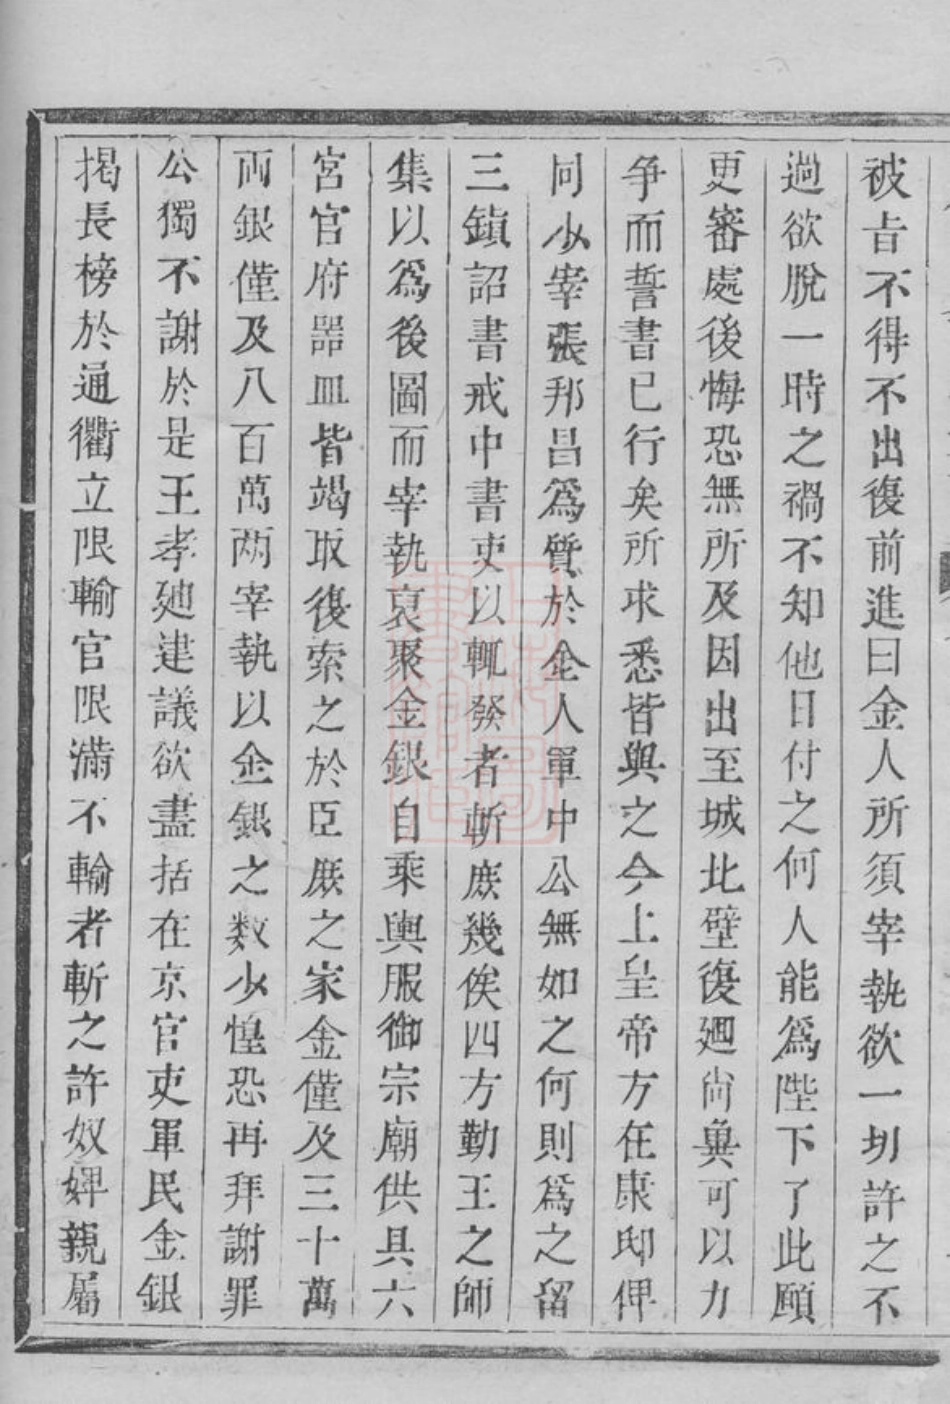 被旨不得不出復前進曰金人所須宰執欲一切許之不
過欲脫一時之禍不知他日付之何人能爲陛下了此願
更審處後悔恐無所及因出至城北壁復廻尚冀可以力
爭而誓書已行矣所求悉皆與之今上皇帝方在康邸俾
同少宰張邦昌爲質於金人軍中公無如之何則爲之留
三鎮詔書戒中書吏以輒發者斬庶幾俟四方勤王之師
集以爲後圖而宰執裒聚金銀自乘輿服御宗廟供具六
宮官府器皿皆竭取復索之於臣庶之家金僅及三十萬
兩銀僅及八百萬两宰執以金銀之数少惶恐再拜謝罪
公獨不謝於是王孝廸建議欲盡括在京官吏軍民金銀
揭長榜於通衢立限輸官限滿不輸者斬之許奴婢親屬